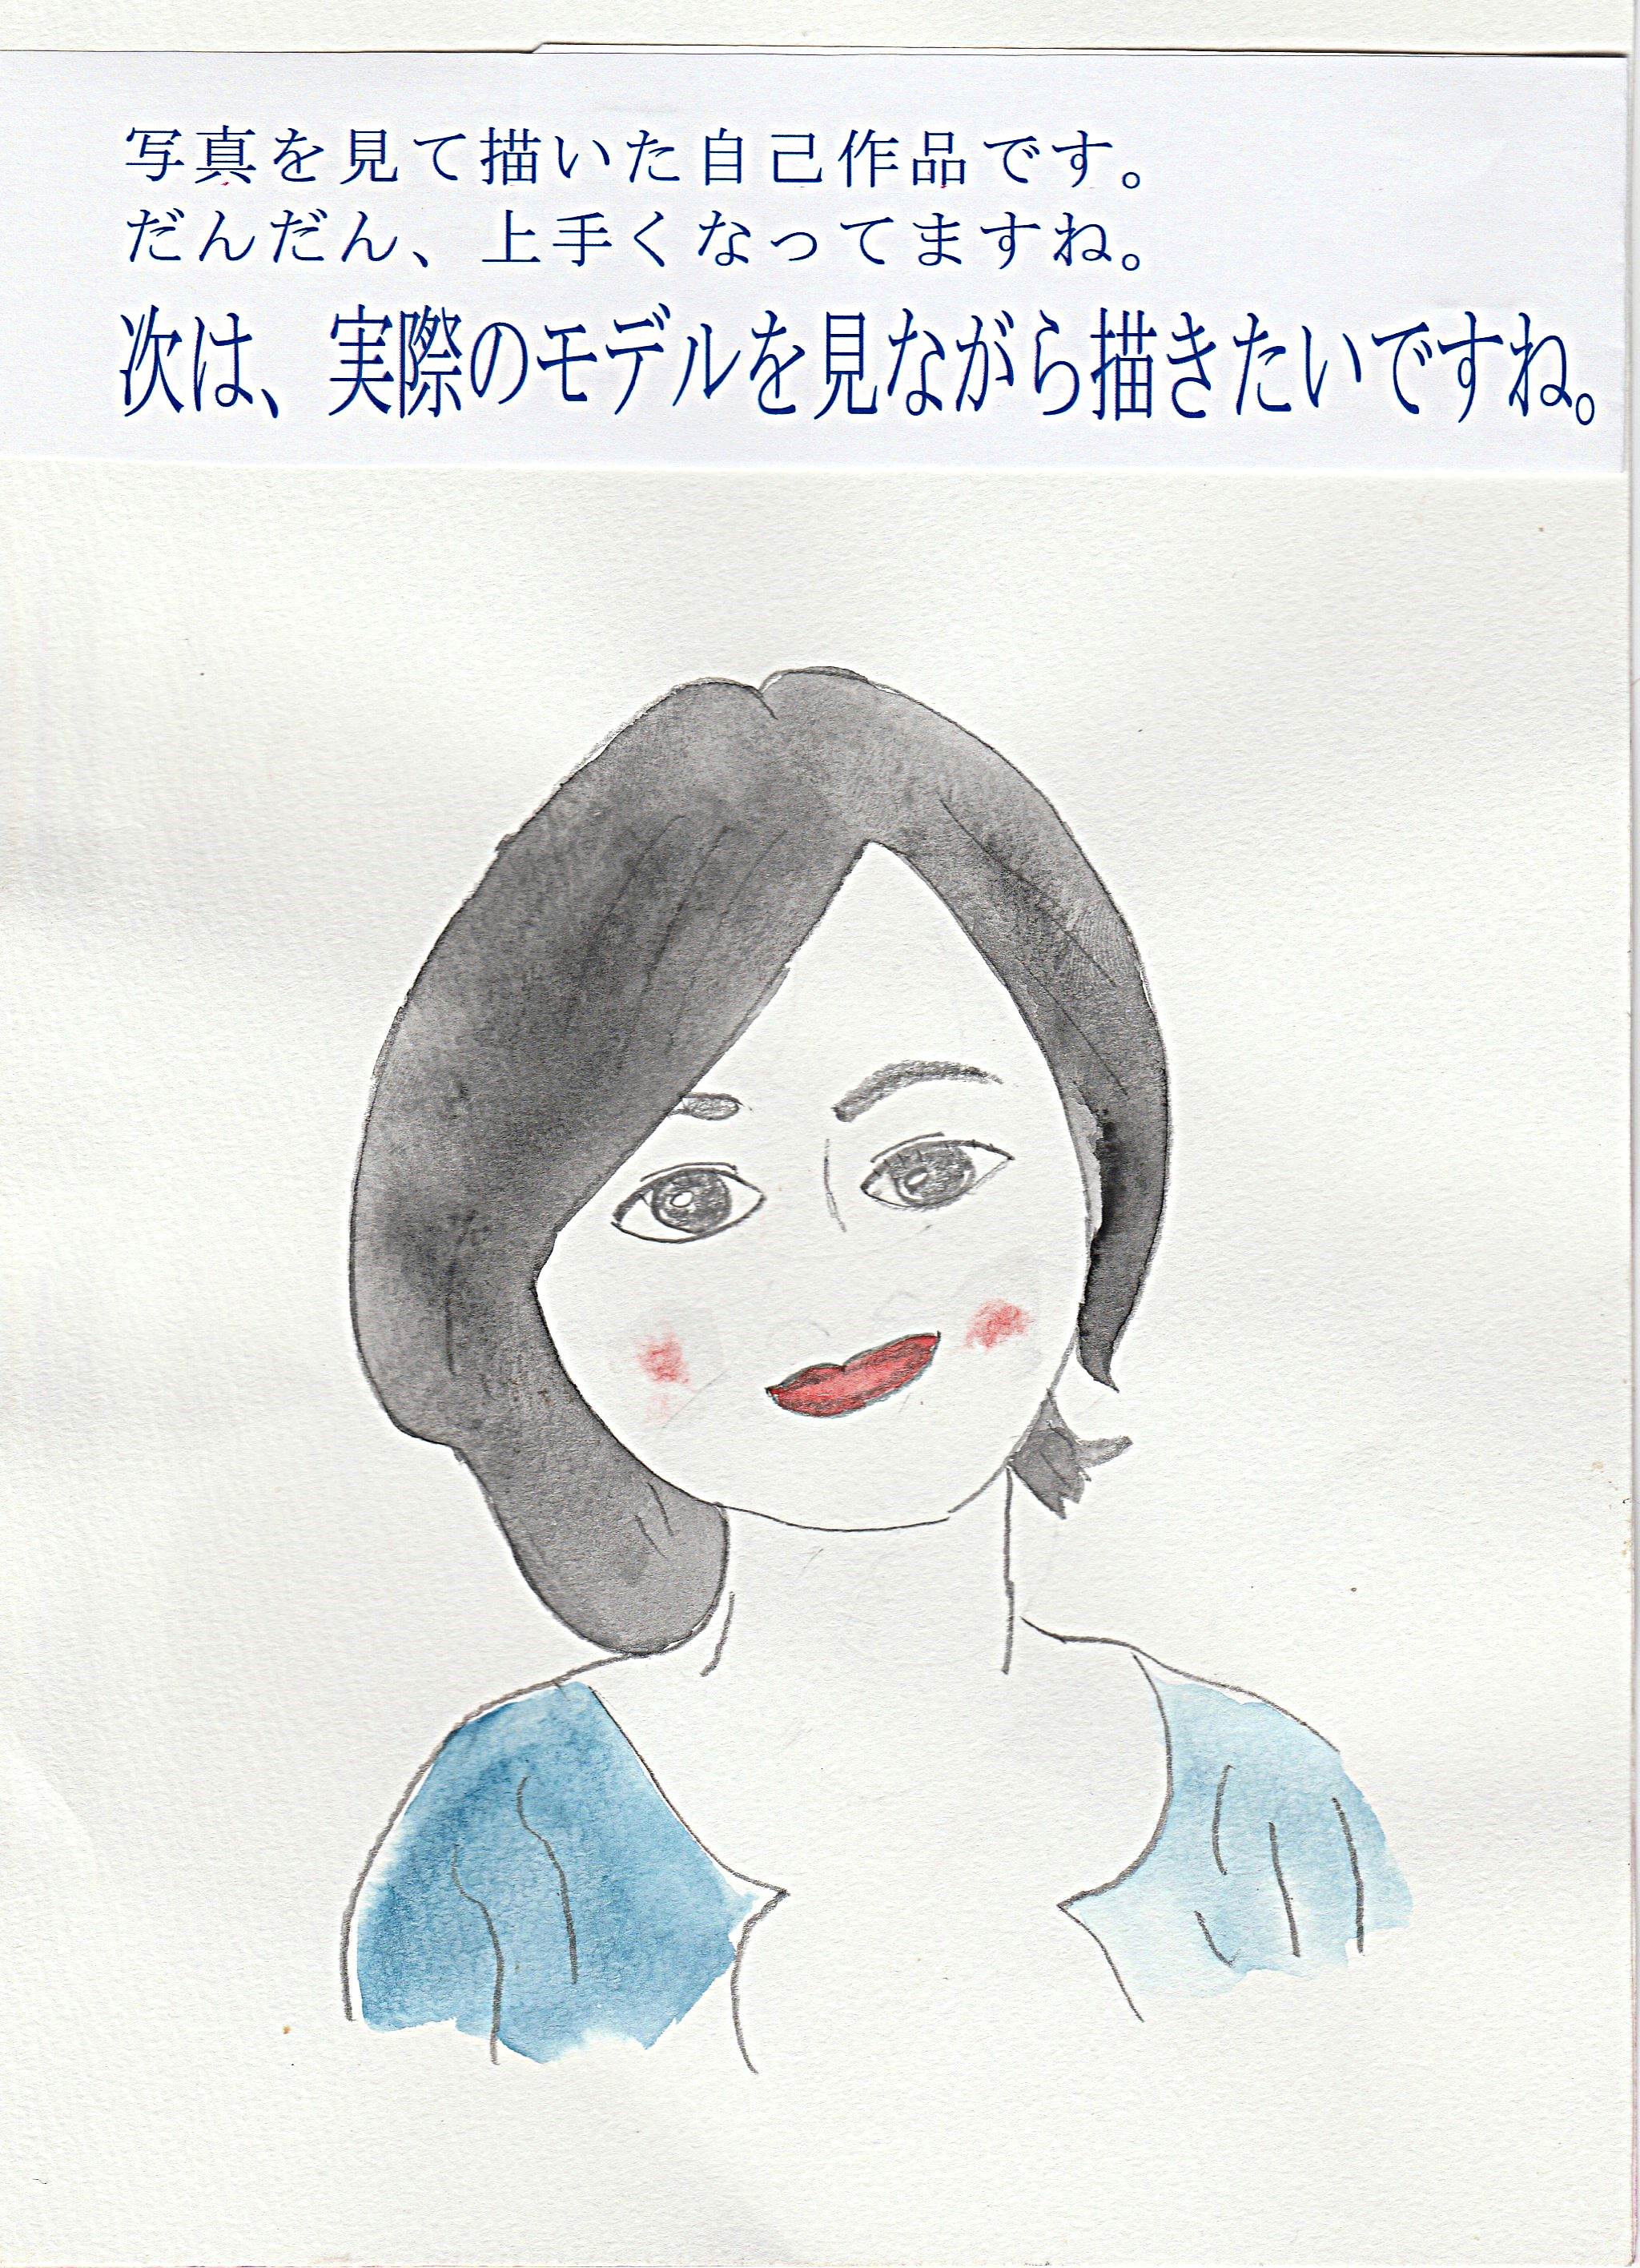 写真を見て描いた自己作品です。
だんだん、上手くなってますね。
次は、実際のモデルを見ながら描きたいですね。